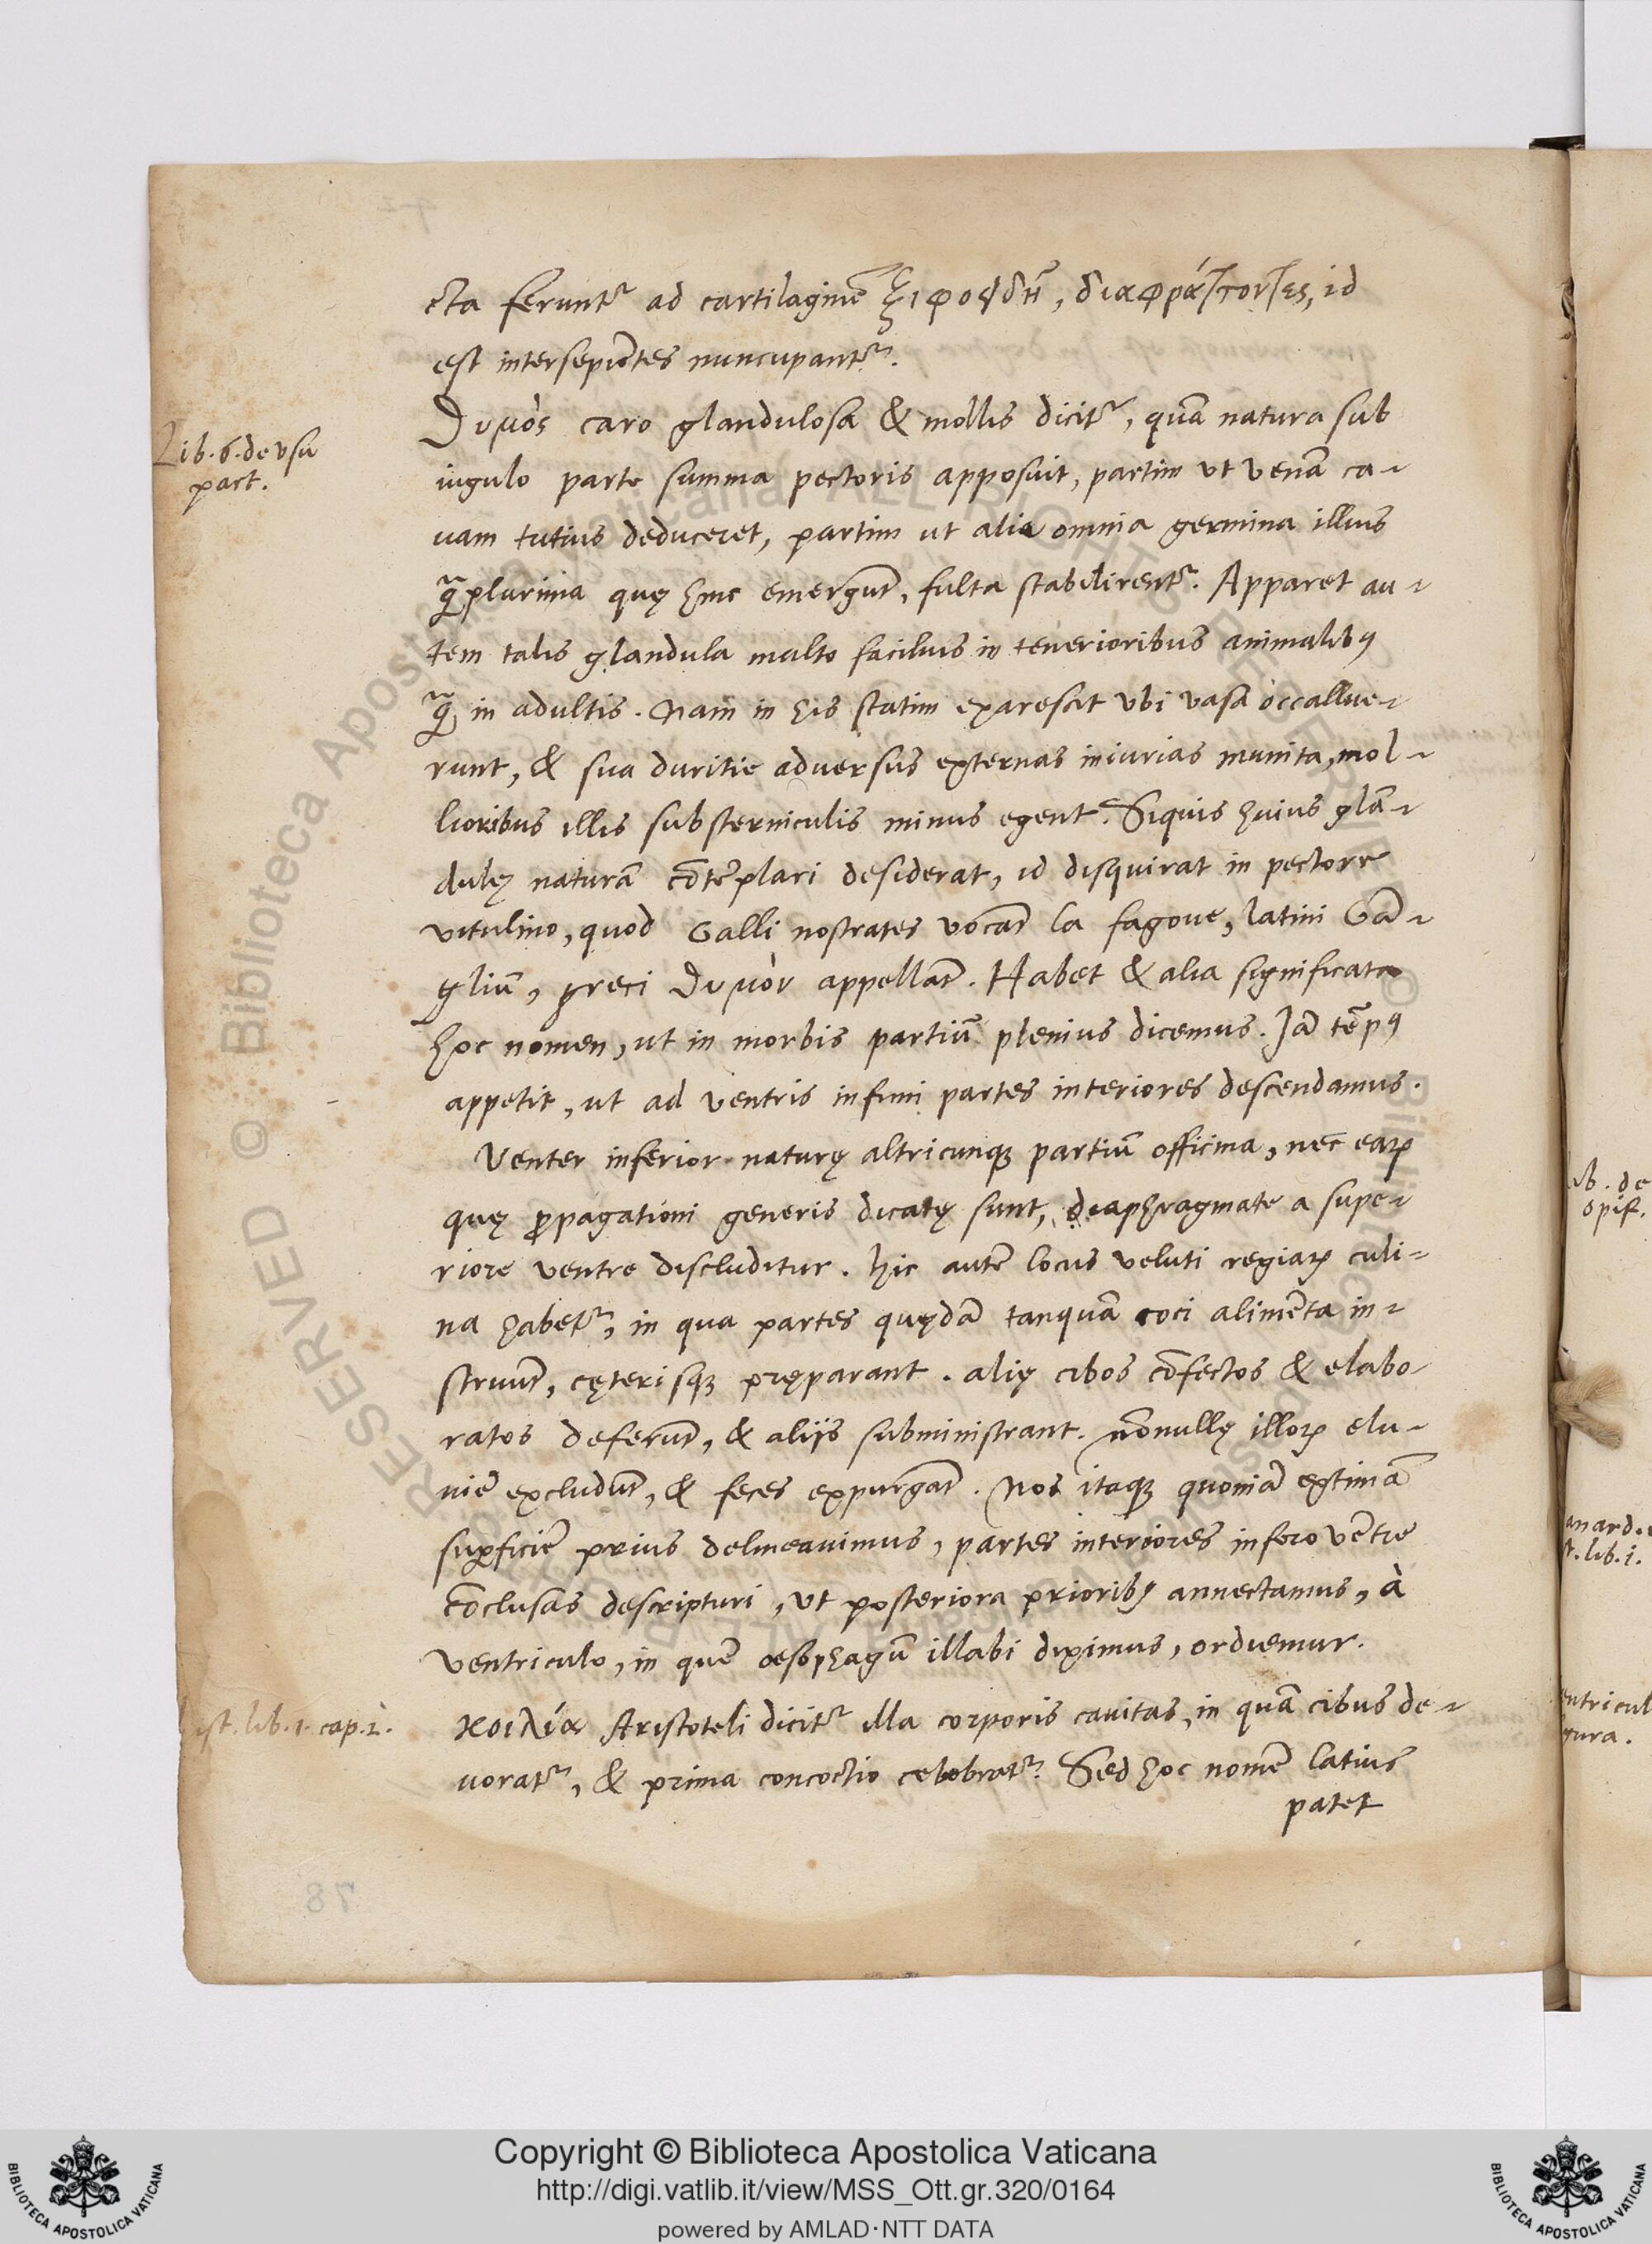 cta feruntr ad cartilaginē ξιφοϊδῆ, διαφράττοντες, id
est intersepiētes nuncupantr.
Lib. 6. de vsu
part.
θυμὸς caro glandulosa & mollis dicitr, quā natura sub
iugulo parte summa pectoris apposuit, partim vt venā ca-
uam tutius deduceret, partim ut alia omnia germina illius
q̃plurima quę hinc emergūt, fulta stabilirentr. Apparet au-
tem talis glandula multo facilius in tenerioribus animalibꝰ
q̃ in adultis. Nam in his statim exarescit vbi vasa occallue-
runt, & sua duritie aduersus externas iniurias munita, mol-
lioribus illis substerniculis minus egent. Siquis huius glā-
dulę naturā cōtēplari desiderat, id disquirat in pectore
vitulino, quod Galli nostrates vocāt la fagoue, latini Gā-
gliū, greci θυμὸν appellāt. Habet & alia significata
hoc nomen, ut in morbis partiū plenius dicemus. Jā tēpꝰ
appetit, ut ad ventris infimi partes interiores descendamus.
Venter inferior naturę altricumqꝫ partiū officina, nec eaꝝ
quę ꝓpagationi generis dicatę sunt, diaphragmate a supe-
riore ventre discluditur. hic autē locus veluti regiaꝝ culi-
na habetr, in qua partes quędā tanquā coci alimēta in-
struūt, cęterisqꝫ pręparant. alię cibos cōfectos & elabo-
ratos deferūt, & alijs subministrant. nōnullę illoꝝ elu-
uiē excludūt, & feces expurgāt. Nos itaqꝫ quoniā extimā
suꝑficiē prius delineauimus, partes interiores infero vētre
cōclusas descripturi, vt posteriora prioribꝰ annectamus, à
ventriculo, in quē oesophagū illabi diximus, ordiemur.
ist. lib. 1. cap. 2.
κοιλία Aristoteli dicitr illa corporis cauitas, in quā cibus de-
uoratr, & prima concoctio celebratr. Sed hoc nomē latius
patet
78
lib. de
opif.
anard.
lib. 1.
entricul
gura.
Copyright © Biblioteca Apostolica Vaticana
http://digi.vatlib.it/view/MSS_Ott.gr.320/0164
powered by AMLAD·NTT DATA
BIBLIOTECA APOSTOLICA VATICANA
BIBLIOTECA APOSTOLICA VATICANA